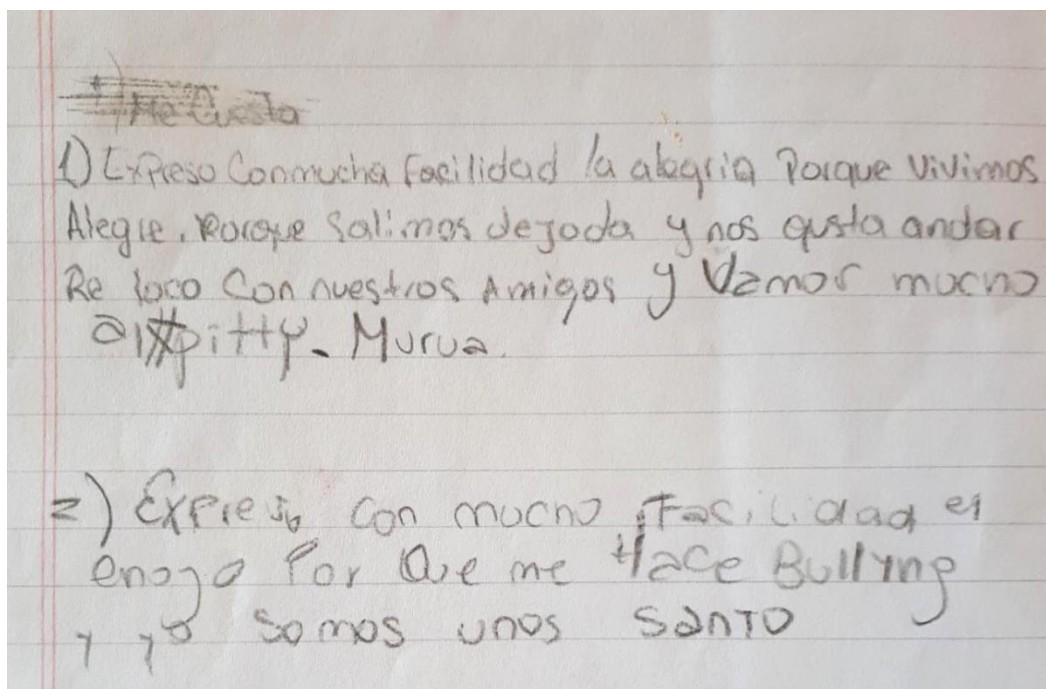 Me Cuesta
1) Expreso Con mucha Facilidad la alegria Porque Vivimos
Alegre. Porque Salimos de joda y nos gusta andar
Re loco Con nuestros Amigos y Vamos mucho
al pitty_Murua.
2) Expreso con mucho Facilidad el
enojo Por Que me Hace Bullyng
y yo somos unos santo